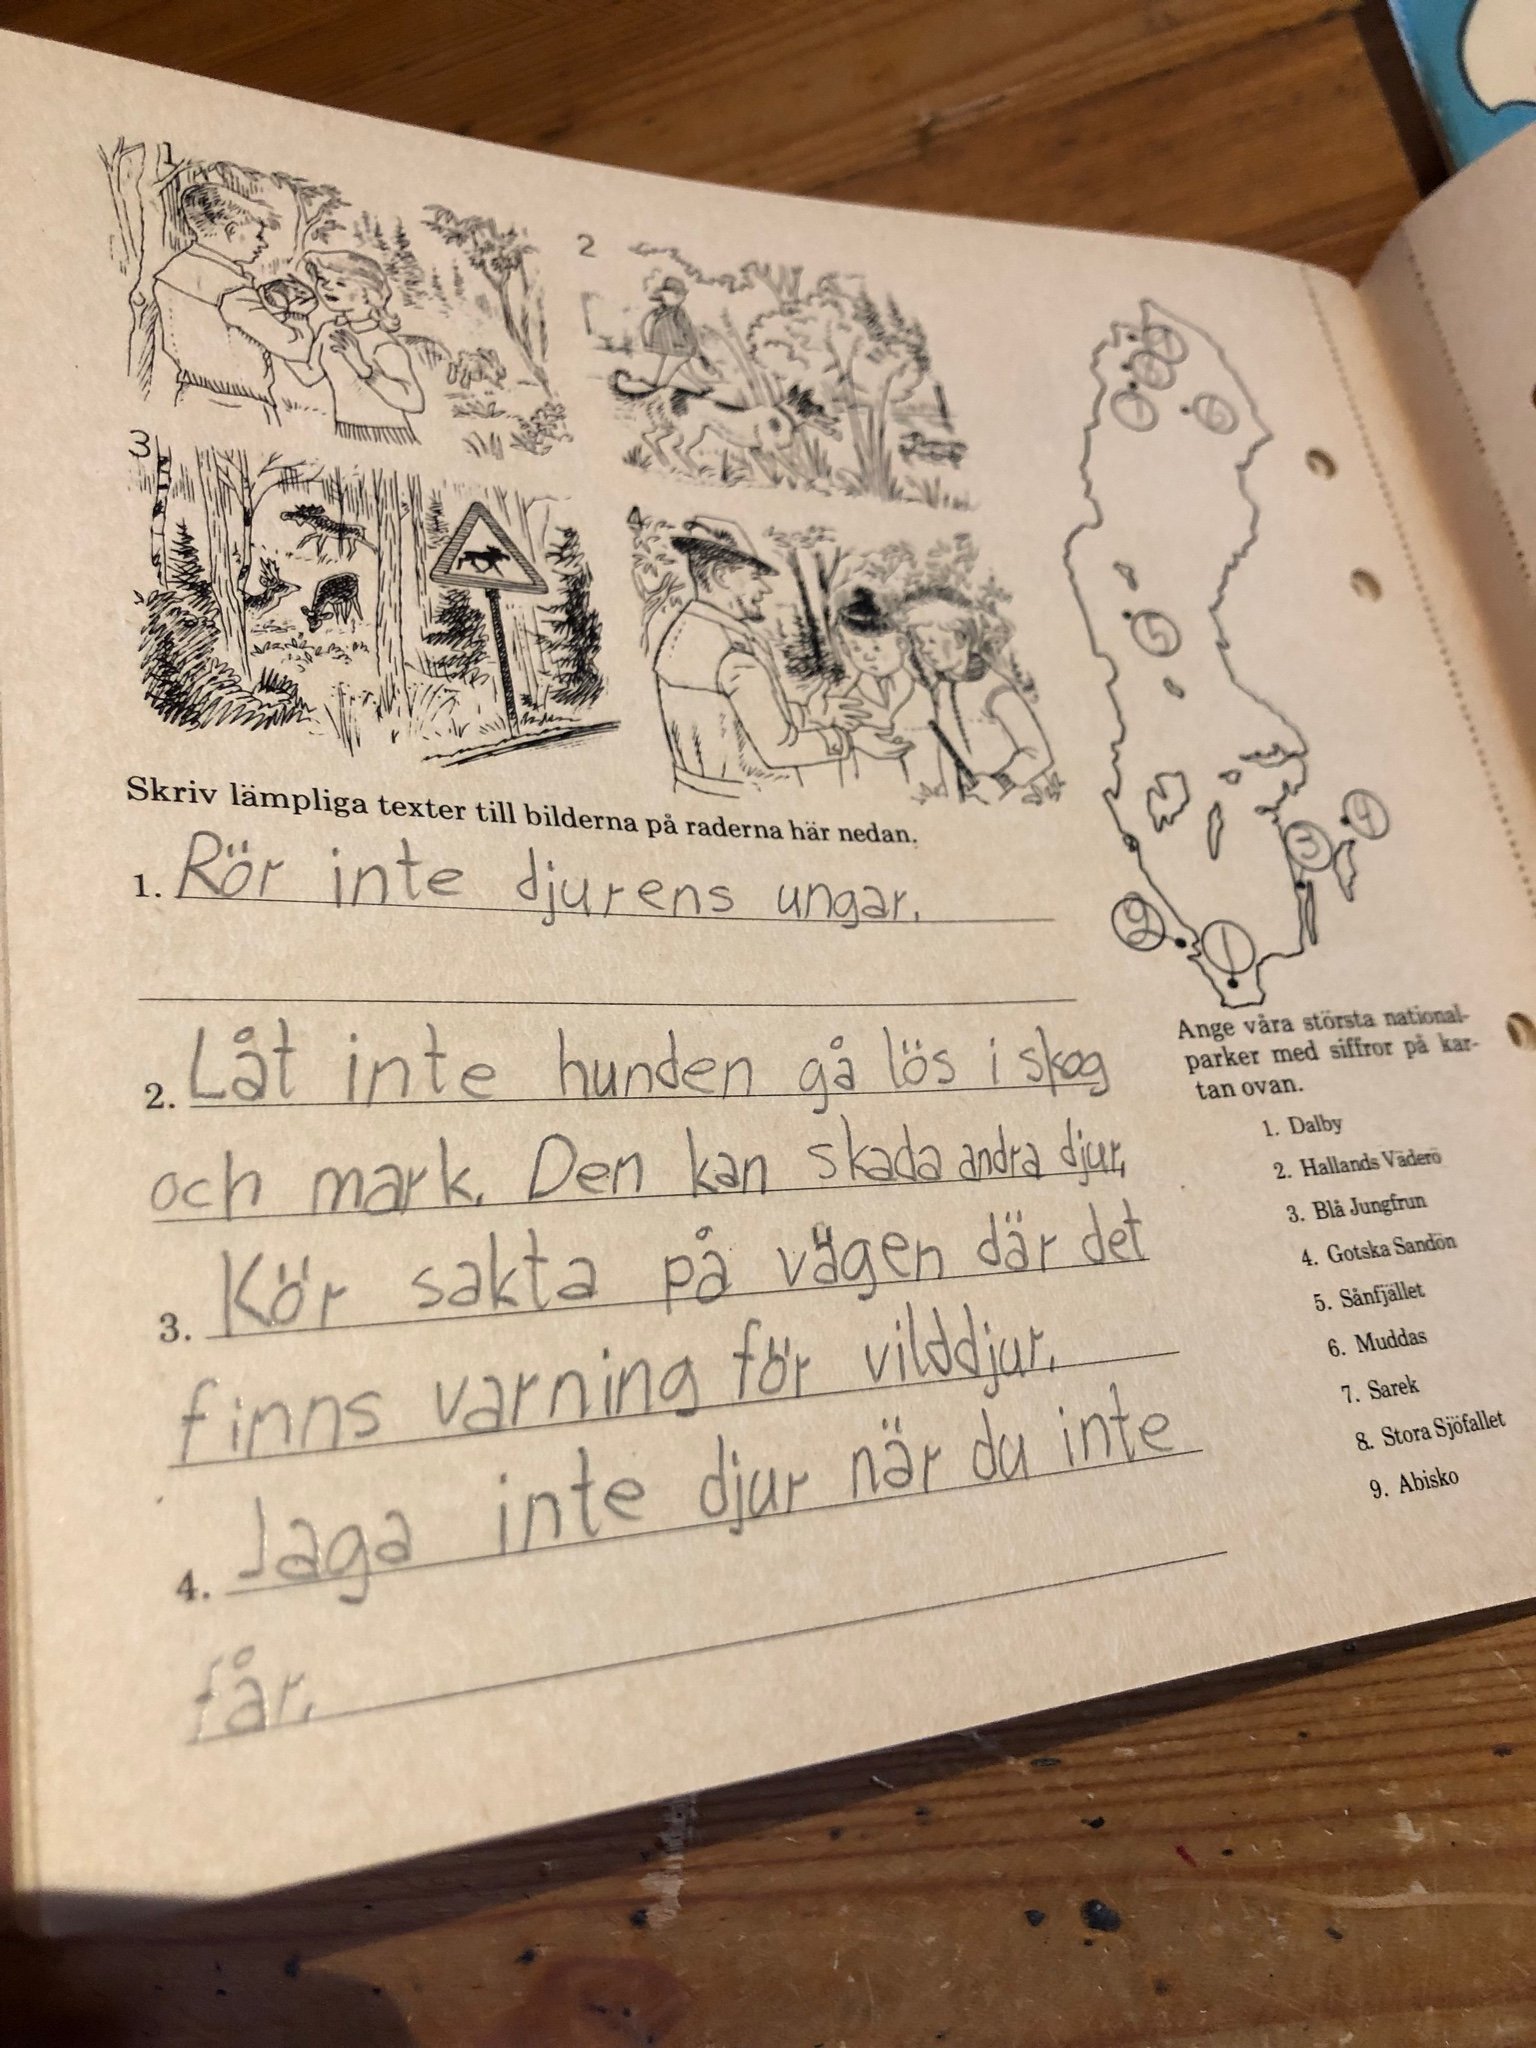 1
2
3
4
Skriv lämpliga texter till bilderna på raderna här nedan.
1. Rör inte djurens ungar.
2. Låt inte hunden gå lös i skog
och mark. Den kan skada andra djur.
3. Kör sakta på vägen där det
finns varning för vilddjur.
4. Jaga inte djur när du inte
får.
6
5
4
3
2
1
Ange våra största national-
parker med siffror på kar-
tan ovan.
1. Dalby
2. Hallands Väderö
3. Blå Jungfrun
4. Gotska Sandön
5. Sånfjället
6. Muddas
7. Sarek
8. Stora Sjöfallet
9. Abisko